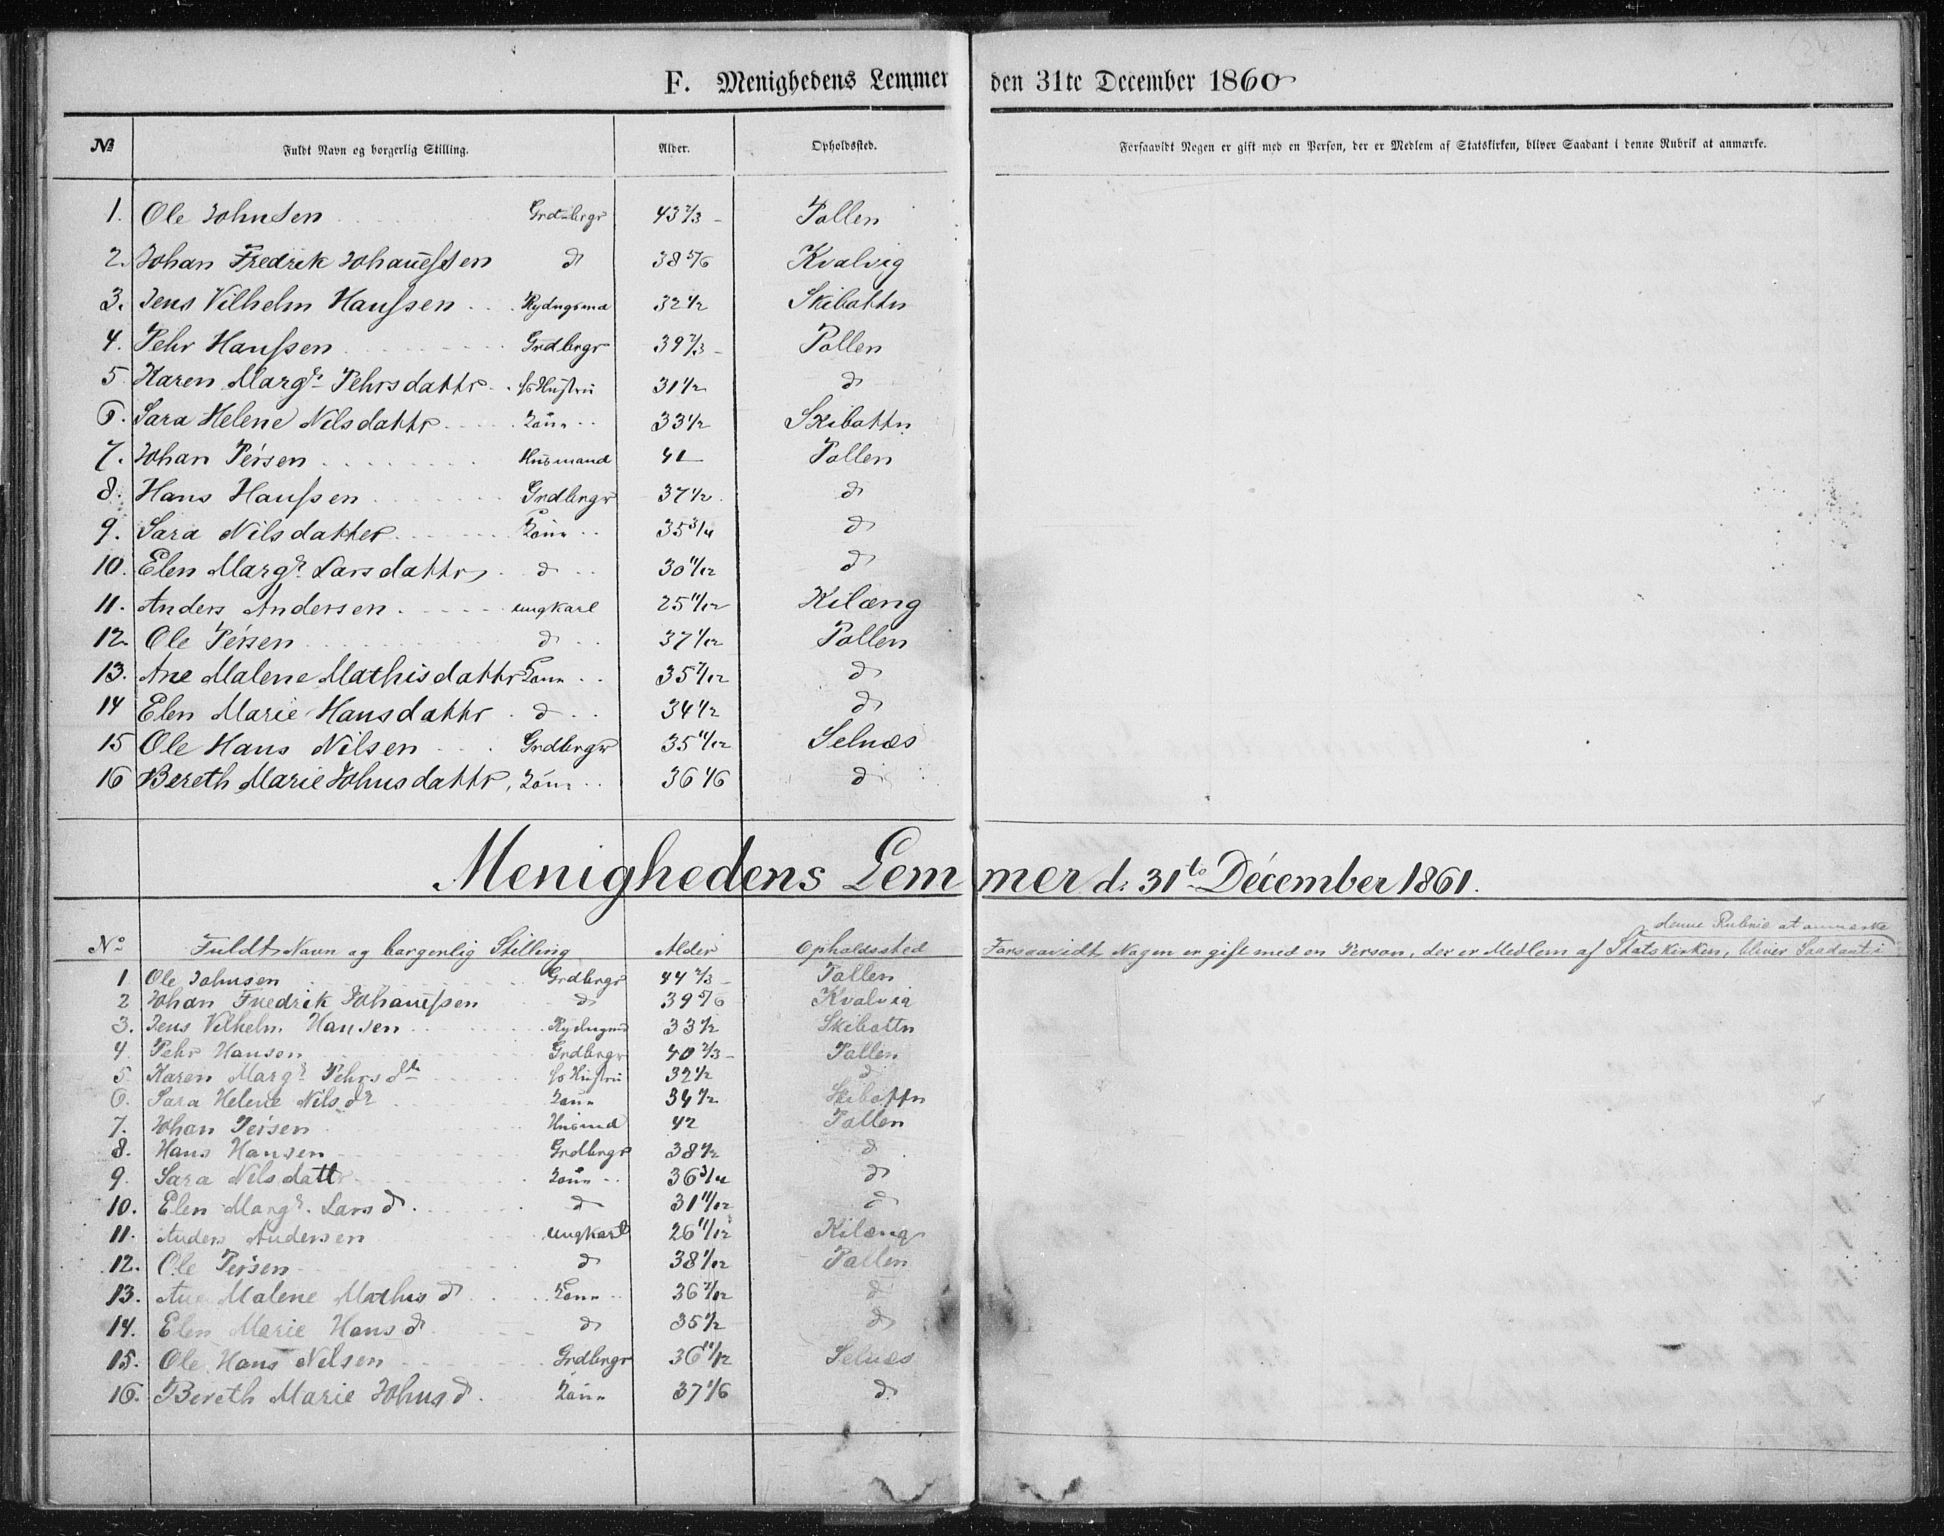 F. Menighedens Lemmer den 31te December 1860
№ Fuldt Navn og borgerlig Stilling. Alder. Opholdssted. Forsaavidt Nogen er gift med en Person, der er Medlem af Statskirken, bliver Saadant i denne Rubrik at anmærke.
1. Ole Johnsen Grdbrgr 43 2/3 Pollen
2. Johan Fredrik Johanessen d 38 5/6 Kvalvig
3. Jens Vilhelm Hanssen Rydngsmd 32 1/2 Skibottn
4. Pehr Hanssen Grdbrgr 39 2/3 Pollen
5 Karen Margr Pehrsdattr Hustru 31 1/2 d
6. Sara Helene Nilsdattr 33 1/2 Skibottn
7. Johan Peisen Husmand 41 Pollen
8. Hans Hanssen Grdbrgr 37 1/2 d
9. Sara Nilsdatter 35 3/4 d
10. Elen Margr Larsdattr d 30 11/12 d
11. Anders Andersen ungkarl 25 11/12 Kilæng
12. Ole Peisen d 37 1/12 Pollen
13. Ane Malene Mathisdattr 35 7/12 d
14 Elen Marie Hansdattr d 34 1/2 d
15 Ole Hans Nilsen Grdbrgr 35 11/12 Selnæs
16 Bereth Marie Johnsdattr 36 1/6 d
Menighedens Lemmer d. 31te December 1861.
denne Rubrik at anmærke
No Fuldt Navn og borgerlig Stilling Alder Opholdssted Forsaavidt Nogen er gift med en Person, der er Medlem af Statskirken, bliver Saadant i
1. Ole Johnsen Grdbrgr 44 2/3 Pollen
2 Johan Fredrik Johanessen d 39 5/6 Kvalvig
3. Jens Vilhelm Hansen Rydngsmd 33 1/2 Skibottn
4 Pehr Hansen Grdbrgr 40 2/3 Pollen
5. Karen Margr Pehrsdtr Hustru 32 1/2 d
6. Sara Helene Nilsdr 34 1/2 Skibottn
7. Johan Peisen Husmd 42 Pollen
8. Hans Hansen Grdbrgr 38 1/2 d
9. Sara Nilsdattr 36 3/4 d
10. Elen Margr. Larsd. d 31 11/12 d
11. Anders Andersen ungkarl 26 11/12 Kilæng
12. Ole Peisen d 38 1/12 Pollen
13. Ane Malene Mathisd 36 7/12 d
14. Elen Marie Hansd d 35 1/2 d
15. Ole Hans Nilsen Grdbrgr 36 11/12 Selnæs
16. Bereth Marie Johnsd. 37 1/6 d